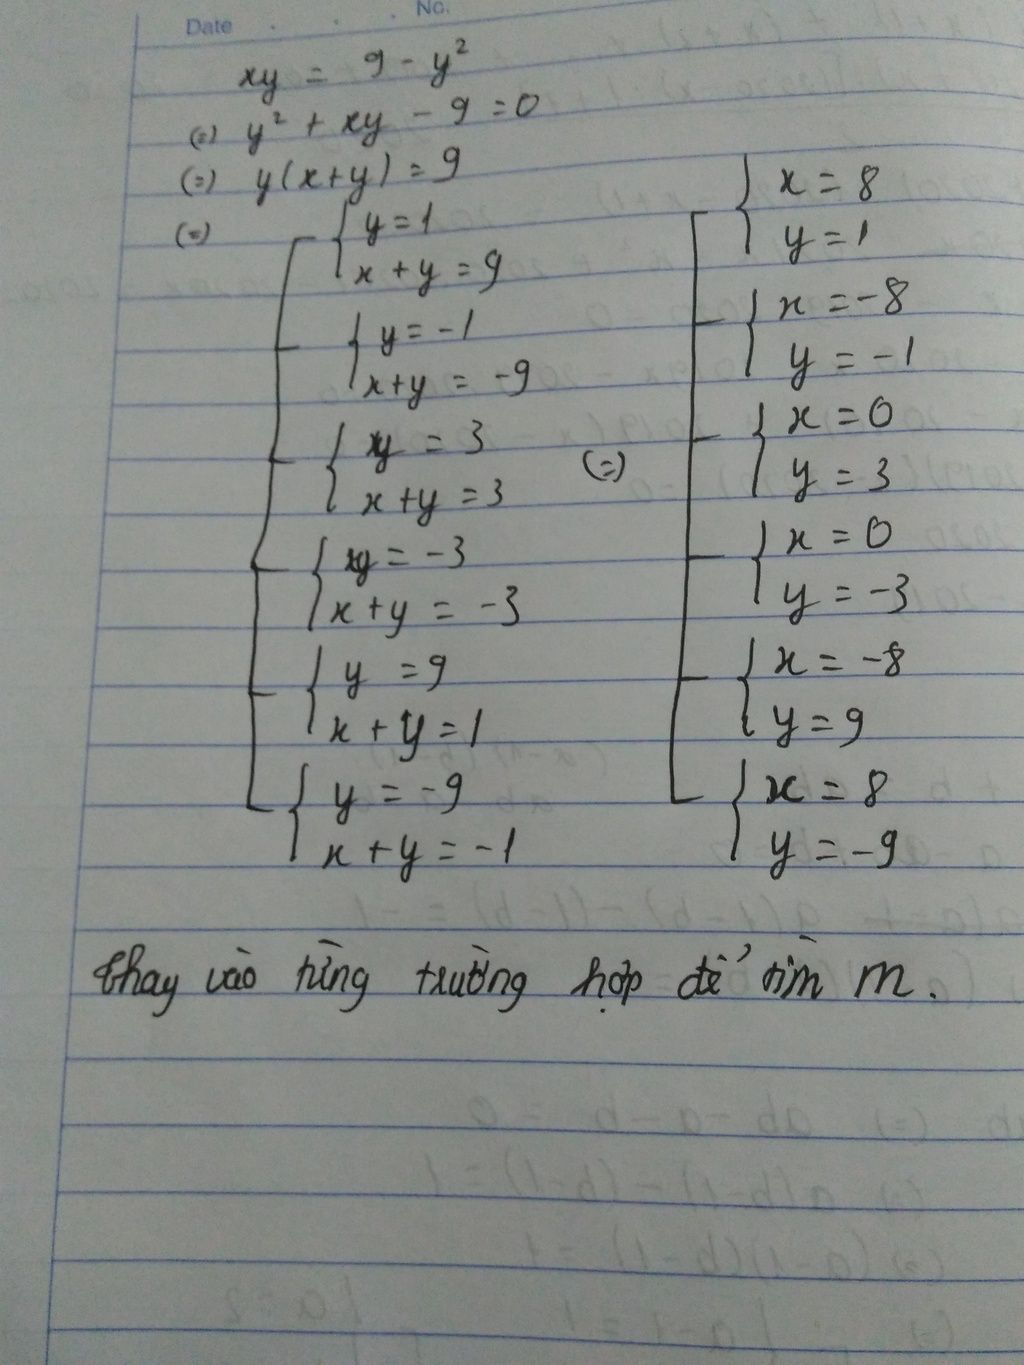 Date . . . No.
xy = 9 - y²
(=) y² + xy - 9 = 0
(=) y(x+y) = 9
(=)
y = 1
x + y = 9
y = -1
x+y = -9
y = 3
x + y = 3
y = -3
x + y = -3
y = 9
x + y = 1
y = -9
x + y = -1
(=)
x = 8
y = 1
x = -8
y = -1
x = 0
y = 3
x = 0
y = -3
x = -8
y = 9
x = 8
y = -9
thay vào từng trường hợp để tìm m.